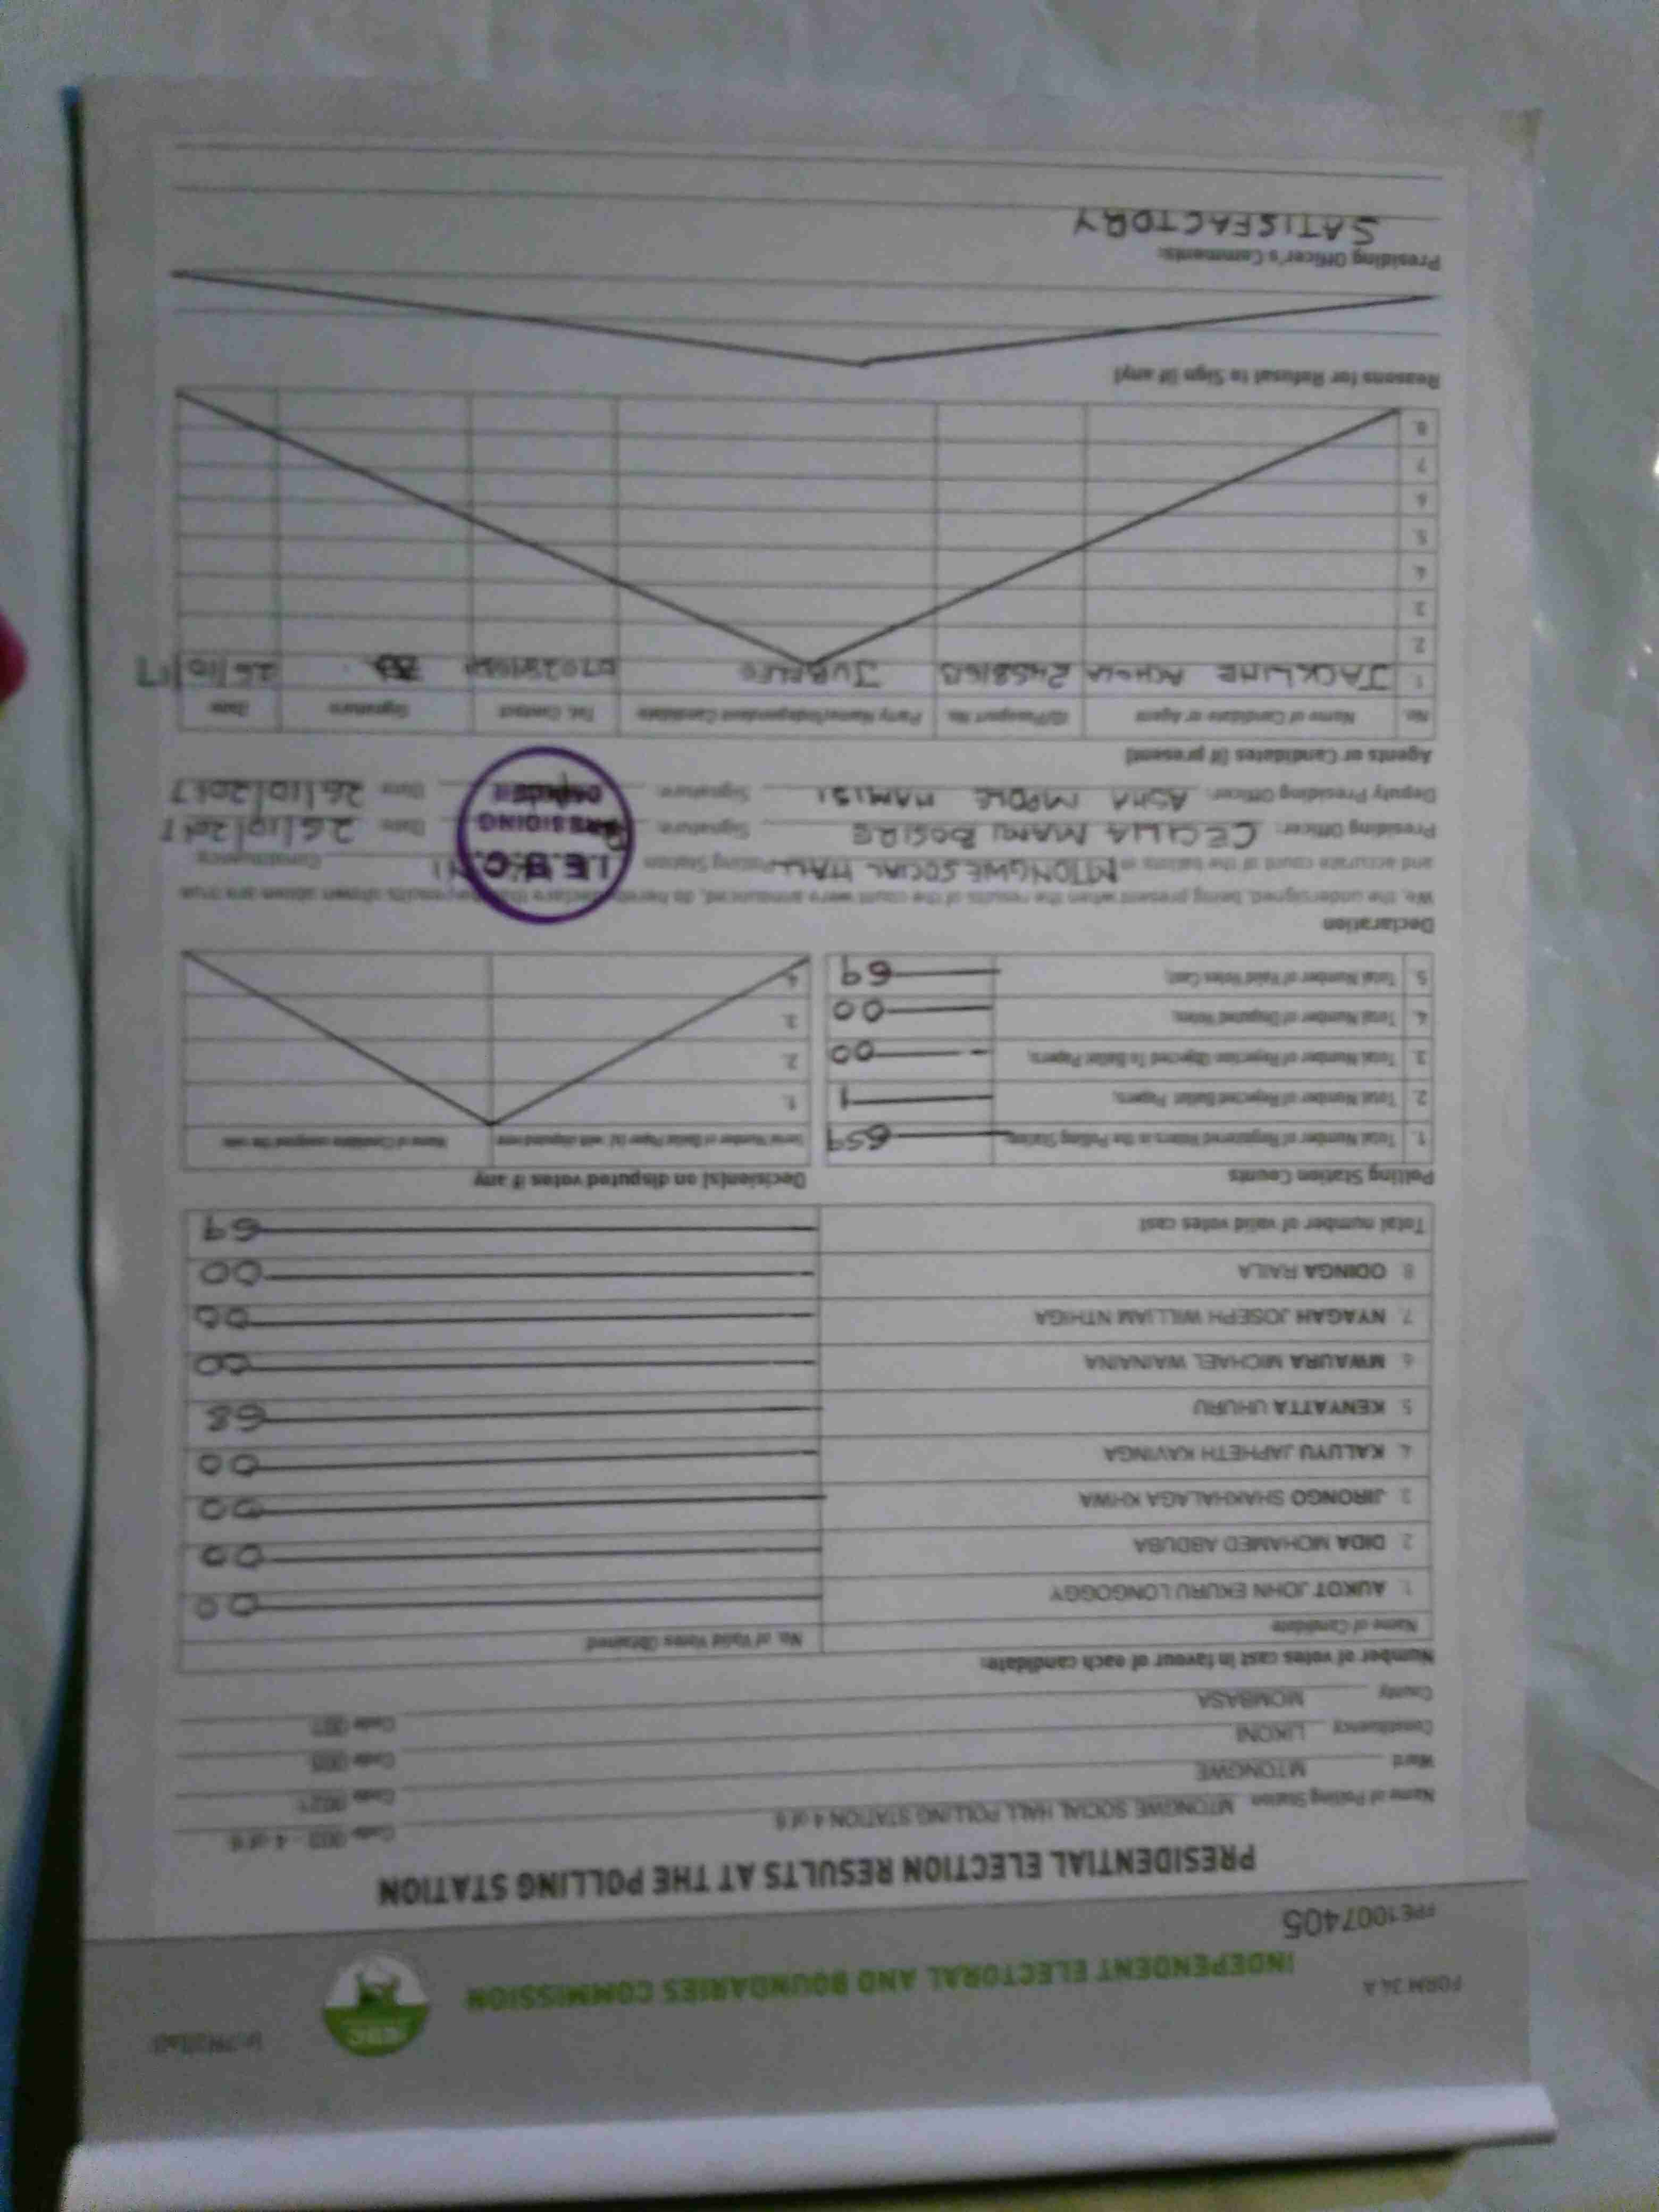 FORM 34 A
INDEPENDENT ELECTORAL AND BOUNDARIES COMMISSION
IEBC
PPE1007405
PRESIDENTIAL ELECTION RESULTS AT THE POLLING STATION
Name of Polling Station MTONGWE SOCIAL HALL POLLING STATION 4 of 6 Code 003 - 4 of 6
Ward MTONGWE Code 0021
Constituency LIKONI Code 005
County MOMBASA Code 001
Number of votes cast in favour of each candidate:
Name of Candidate No. of Valid Votes Obtained
1. AUKOT JOHN EKURU LONGOGGY 00
2. DIDA MOHAMED ABDUBA 00
3. JIRONGO SHAKHALAGA KHWA 00
4. KALUYU JAPHETH KAVINGA 00
5. KENYATTA UHURU 68
6. MWAURA MICHAEL WAINAINA 00
7. NYAGAH JOSEPH WILLIAM NTHIGA 00
8. ODINGA RAILA 00
Total number of valid votes cast 69
Polling Station Counts
1. Total Number of Registered Voters in the Polling Station 659
2. Total Number of Rejected Ballot Papers; 1
3. Total Number of Rejection Objected To Ballot Papers; 00
4. Total Number of Disputed Votes; 00
5. Total Number of Valid Votes Cast; 69
Decision(s) on disputed votes if any
Serial Number of Ballot Paper (s) with disputed vote Name of Candidate assigned the vote
1.
2.
3.
4.
Declaration
We, the undersigned, being present when the results of the count were announced, do hereby declare that the results shown above are true
and accurate count of the ballots in MTONGWE SOCIAL HALL Polling Station Constituency
Presiding Officer: CECILIA MANU BOSIRE Signature: Date 26/10/2017
Deputy Presiding Officer: ASHA MPOLE HAMISI Signature: Date 26/10/2017
I.E.B.C.
PRESIDING
OFFICER
Agents or Candidates (if present)
No. Name of Candidate or Agent ID/Passport No. Party Name/Independent Candidate Tel. Contact Signature Date
1. JACKLINE ACHOLA 26/10/17
2
3
4
5
6
7
8
Reasons for Refusal to Sign (if any)
Presiding Officer's Comments:
SATISFACTORY